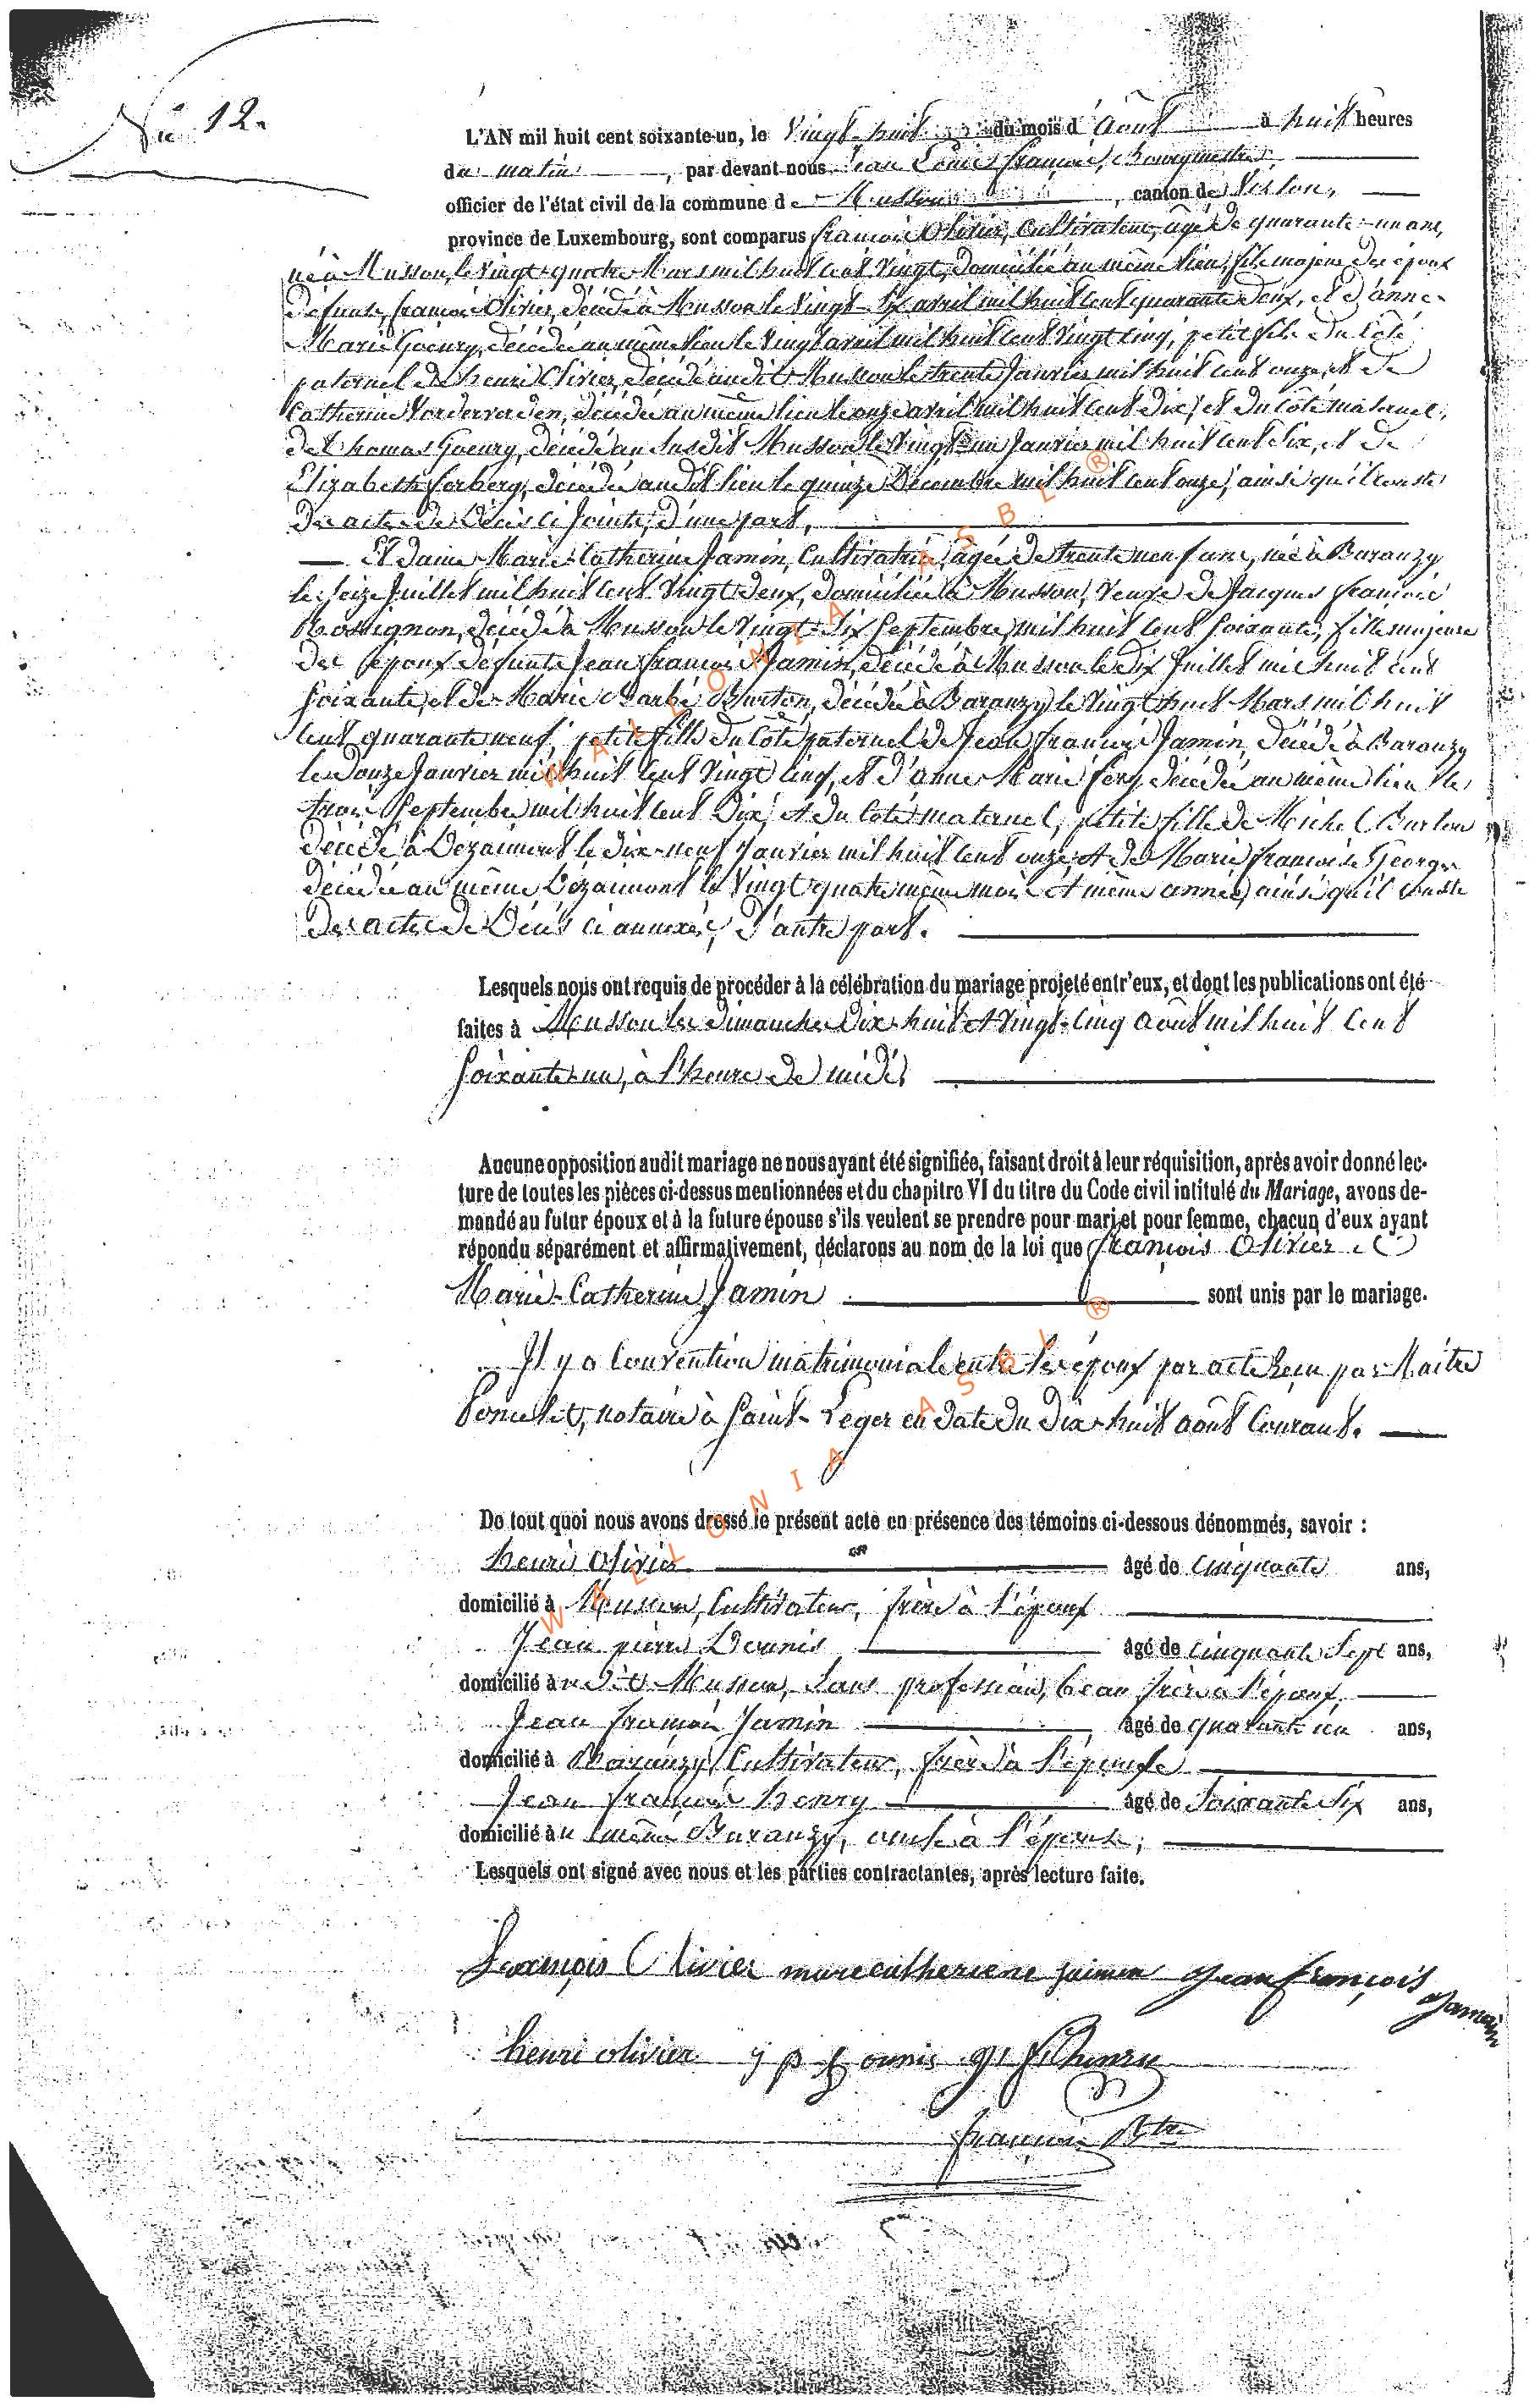 No 12.
L'AN mil huit cent soixante-un, le Vingt-huit du mois d'Août à huit heures
du matin, par devant nous Jean Louis françois, Bourgmestre,
officier de l'état civil de la commune de Musson, canton de Virton,
province de Luxembourg, sont comparus françois Olivier, Cultivateur, âgé de quarante-un ans,
né à Musson, le vingt-quatre Mars mil huit cent vingt, domicilié au même lieu, fils majeur des époux
défunts, françois Olivier, décédé à Musson le vingt-six avril mil huit cent quarante deux, et d'anne-
Marie Goeury, décédée au même lieu le vingt avril mil huit cent vingt cinq, petit fils du côté
paternel de henri Olivier, décédé audit Musson le trente Janvier mil huit cent onze, et de
Catherine Vorderverden, décédée au même lieu le onze avril mil huit cent dix, et du côté maternel,
de thomas Goeury, décédé au susdit Musson le vingt-un Janvier mil huit cent six, et de
Elizabeth forberg, décédée audit lieu le quinze Décembre mil huit cent onze, ainsi qu'il conste
des actes de Décès ci joints, d'une part,
Et dame Marie-Catherine Jamin, Cultivatrice, âgée de trente neuf ans, née à Baranzy
le seize Juillet mil huit cent vingt deux, domiciliée à Musson, Veuve de Jacques françois
Rossignon, décédé à Musson le vingt-six Septembre mil huit cent soixante, fille majeure
des époux défunts Jean françois Jamin, décédé à Musson le dix Juillet mil huit cent
soixante, et de Marie Barbe Burton, décédée à Baranzy le vingt huit Mars mil huit
cent quarante neuf, petite fille du côté paternel de Jean françois Jamin, décédé à Baranzy
le douze Janvier mil huit cent vingt cinq, et d'anne Marie féry, décédée au même lieu le
trois Septembre mil huit cent dix, et du coté maternel, petite fille de Michel Burton
décédé à Bozaimont le dix-neuf Janvier mil huit cent onze, et de Marie françoise Georges
décédée au même Bozaimont le vingt quatre même mois et même année, ainsi qu'il conste
des actes de Décès ci annexés, d'autre part.
Lesquels nous ont requis de procéder à la célébration du mariage projeté entr'eux, et dont les publications ont été
faites à Musson les dimanches dix-huit et vingt-cinq août mil huit cent
soixante-un, à l'heure de midi
Aucune opposition audit mariage ne nous ayant été signifiée, faisant droit à leur réquisition, après avoir donné lec-
ture de toutes les pièces ci-dessus mentionnées et du chapitre VI du titre du Code civil intitulé du Mariage, avons de-
mandé au futur époux et à la future épouse s'ils veulent se prendre pour mari et pour femme, chacun d'eux ayant
répondu séparément et affirmativement, déclarons au nom de la loi que françois Olivier et
Marie-Catherine Jamin sont unis par le mariage.
Il y a Convention matrimoniale entre les époux par acte reçu par Maitre
notaire à Saint-Leger en date du dix-huit août Courant.
De tout quoi nous avons dressé le présent acte en présence des témoins ci-dessous dénommés, savoir :
henri Olivier âgé de Cinquante ans,
domicilié à Musson, Cultivateur, frère à l'époux
Jean pierre Dounis âgé de cinquante Sept ans,
domicilié audit Musson, Sans profession, beau frère à l'époux,
Jean françois Jamin âgé de quarante un ans,
domicilié à Baranzy, Cultivateur, frère à l'épouse
Jean françois henry âgé de Soixante Six ans,
domicilié au même Baranzy, oncle à l'épouse,
Lesquels ont signé avec nous et les parties contractantes, après lecture faite.
francois Olivier marecatheriene jaimen Jeanfrançois Jamin
henri olivier j p dounis J F henry
françois Btre
WALLONIA ASBL ®
WALLONIA ASBL ®